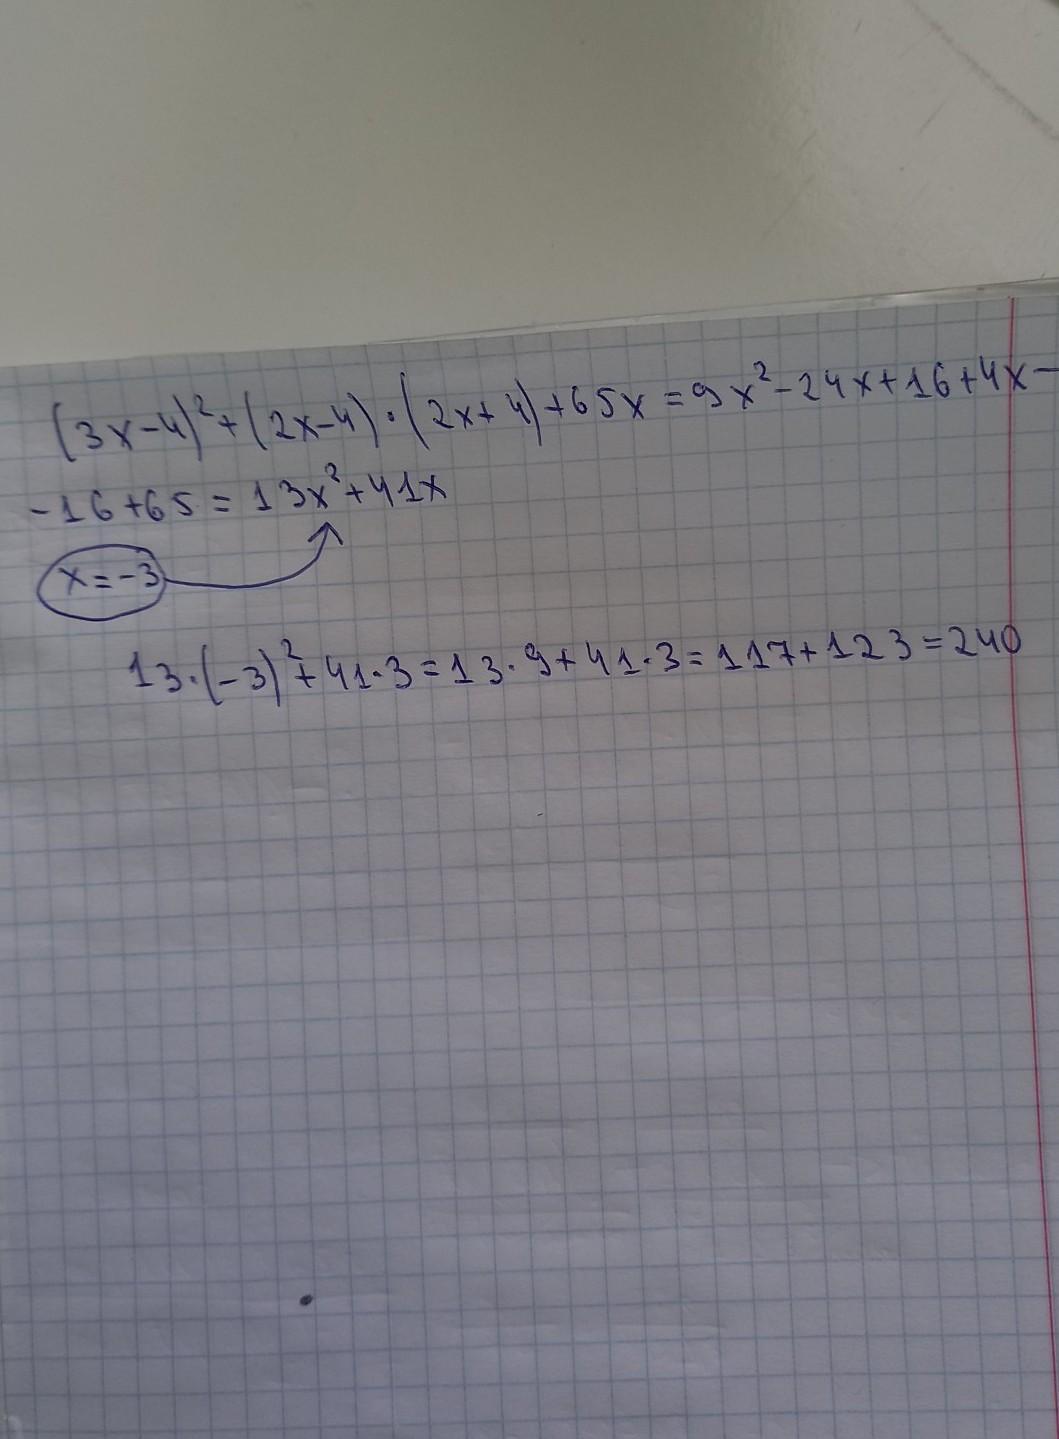 (3x-4)²+(2x-4)·(2x+4)+65x=9x²-24x+16+4x-
-16+65=13x²+41x
x=-3
13·(-3)²+41·3=13·9+41·3=117+123=240